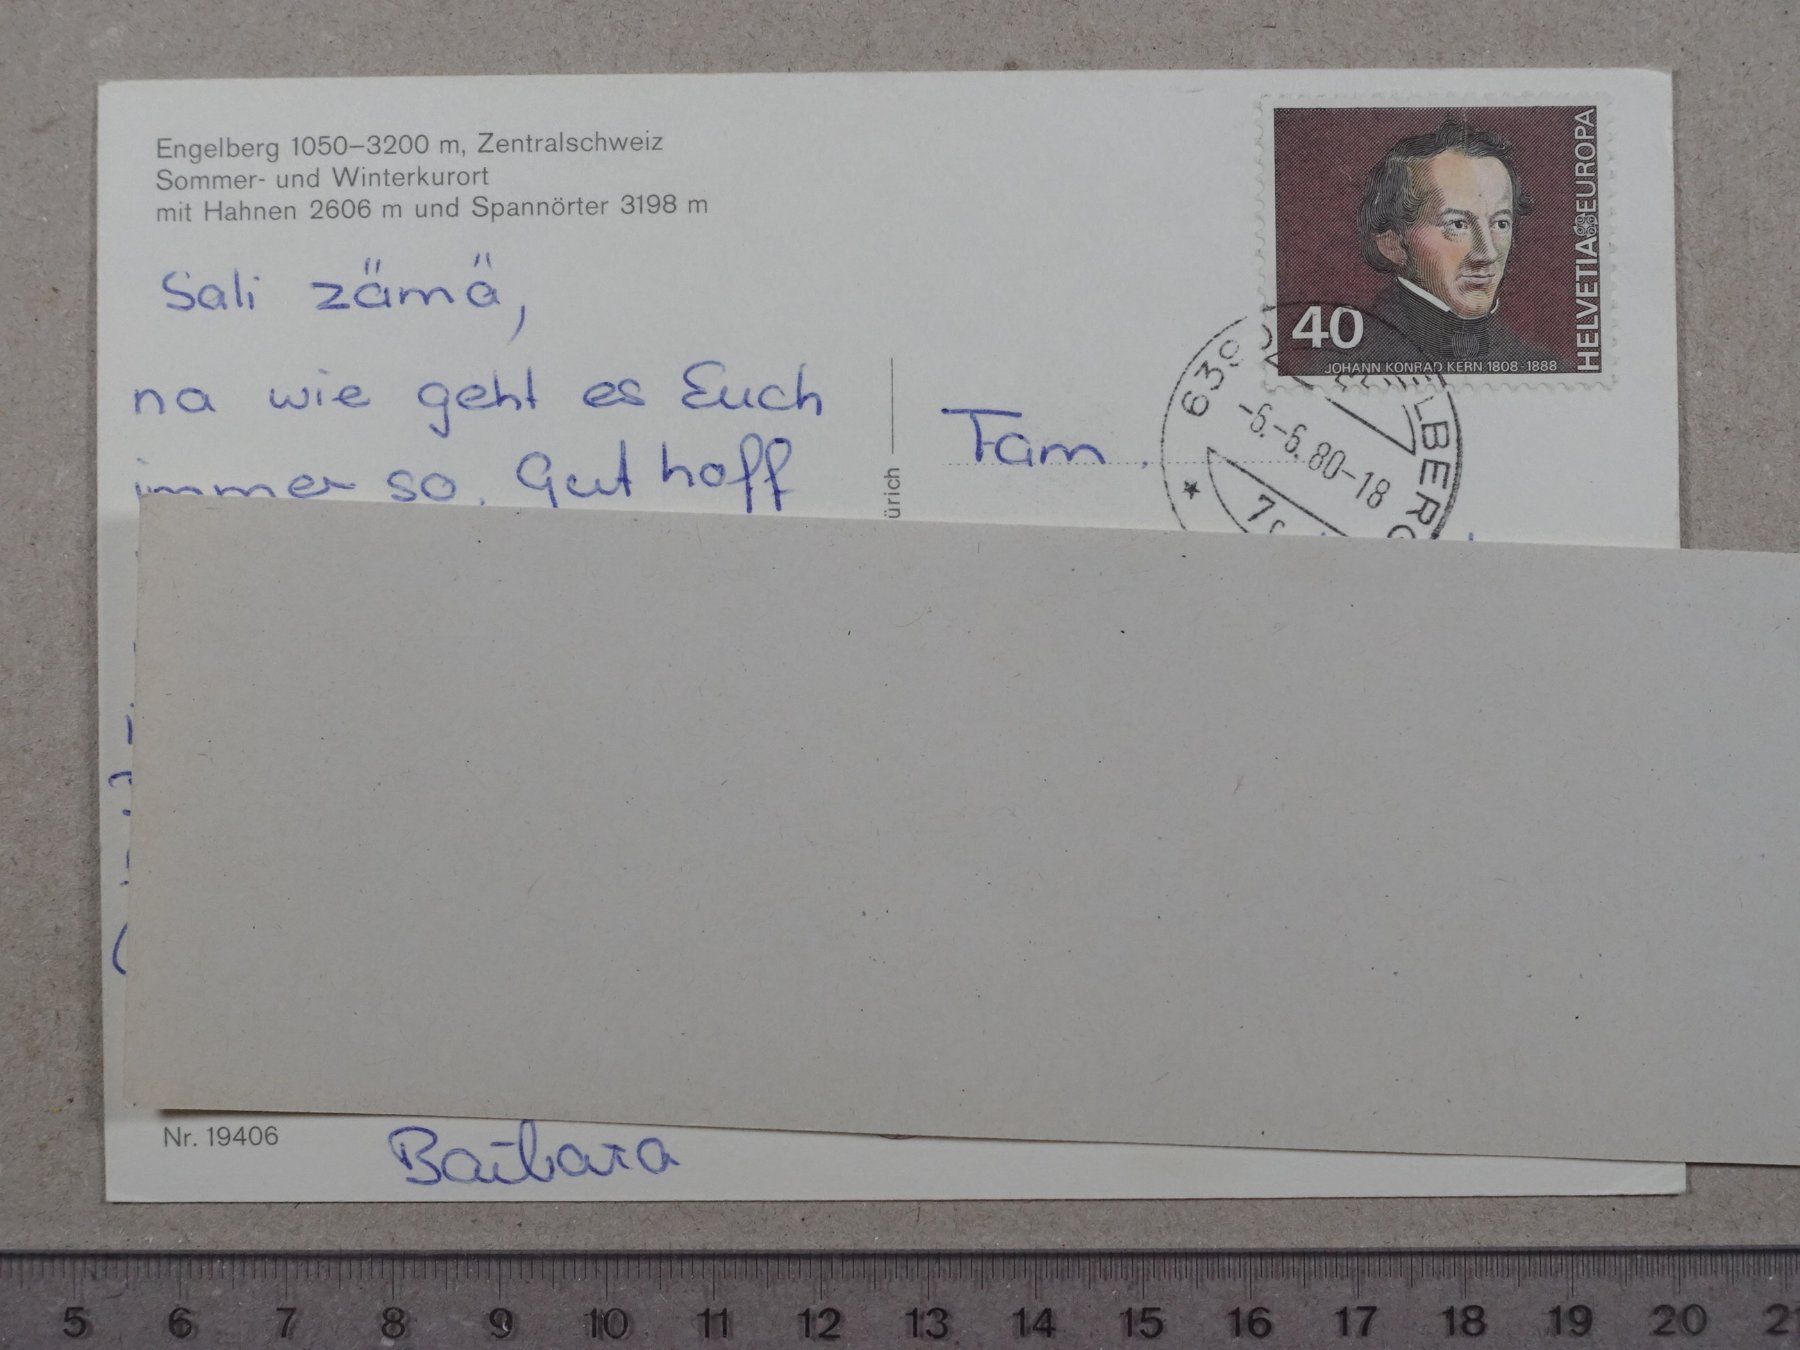 Engelberg 1050–3200 m, Zentralschweiz
Sommer- und Winterkurort
mit Hahnen 2606 m und Spannörter 3198 m
Sali zämä,
na wie geht es Euch
immer so. Gut hoff
Barbara
Nr. 19406
ürich
Fam.
40
JOHANN KONRAD KERN 1808-1888
HELVETIA EUROPA
-6.-6.80-18
5 6 7 8 9 10 11 12 13 14 15 16 17 18 19 20 21